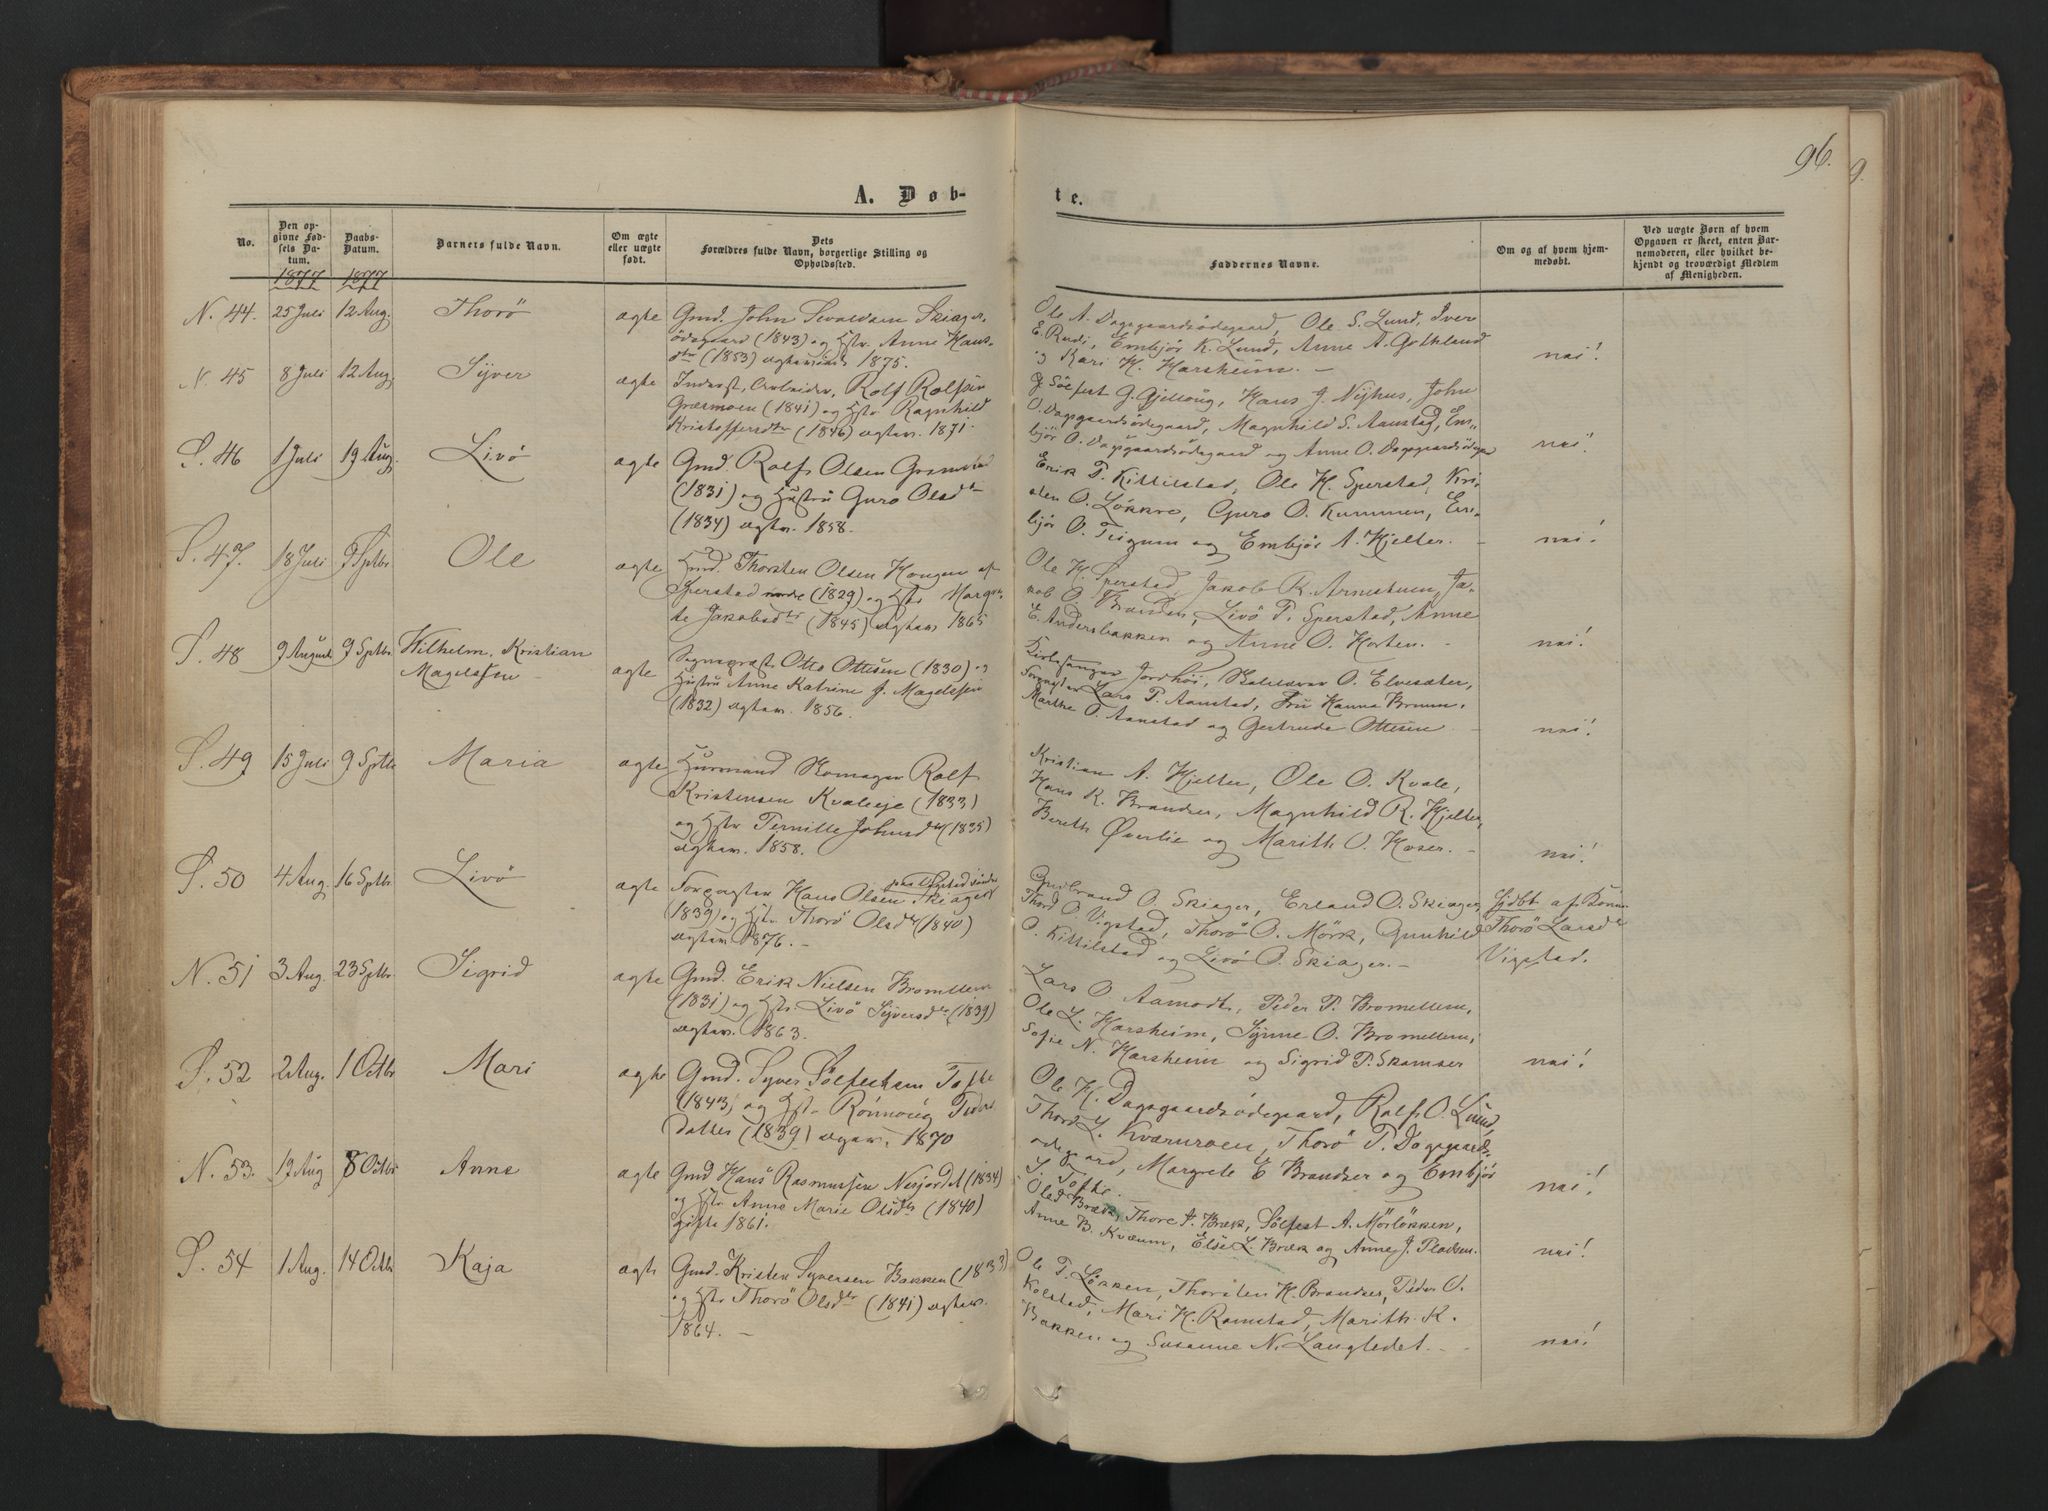 96.
9.
A. Døb-
te.
No.
Den op-
givne Fød-
sels Da-
tum.
Daabs-
Datum.
Barnets fulde Navn.
Om ægte
eller uægte
født.
Dets
Forældres fulde Navn, borgerlige Stilling og
Opholdssted.
Faddernes Navne.
Om og af hvem hjem-
medøbt.
Ved uægte Børn af hvem
Opgaven er skeet, enten Bar-
nemoderen, eller hvilket be-
kjendt og troværdigt Medlem
af Menigheden.
1877 1877
N. 44. 25 Juli 12 Aug. Thorö ægte Gmd. John Sivaldsen Skiager-
ödegaard (1843) og Hstr. Anne Hans-
dtr (1853) ægteviede 1875.
Ole A. Dagsgaardsödegaard, Ole S. Lund, Iver
E. Rudi, Embjör K. Lund, Anne A. Gothland
og Kari H. Harsheim. —
nei!
N. 45 8 Juli 12 Aug. Syver ægte Inderst, Arbeider, Rolf Rolfsen
Græsmoen (1841) og Hstr Ragnhild
Kristoffersdtr (1846) ægtev. 1871.
Sölfest G. Gjelloug, Hans J. Nyhus, John
O. Dagsgaardsödegaard, Magnhild S. Aanstad, Em-
björ O. Dagsgaardsödegaard og Anne O. Dagsgaardsödegr
nei!
S. 46 1 Juli 19 Aug. Livö ægte Gmd. Rolf Olsen Grimstad
(1831) og Hustru Guro Olsdtr
(1834) ægtev. 1858.
Erik T. Kittilstad, Ole H. Sperstad, Kri-
sten O. Løkkre, Guro O. Kummen, Em-
björ O. Teigum og Embjör A. Hjelter. —
nei!
S. 47. 18 Juli 9 Sptbr Ole ægte Hmd. Thorsten Olsen Haugen af
Sperstad nordre (1829) og Hstr Margre-
te Jakobsdtr (1845) ægtev 1865
Ole H. Sperstad, Jakob R. Arnestuen, Ja-
kob O. Branden, Livö T. Sperstad, Anne
E. Andersbakken og Anne O. Horten. —
nei!
S. 48 9 August 9 Sptbr. Wilhelm Kristian
Magelssen —
ægte Sognepræst Otto Ottesen (1830) og
Hustru Anne Katrine J. Magelssen
(1832) ægtev. 1856.
Kirkesanger Jordhöi, Baldevar O. Elvesæter,
Forpagter Lars P. Aanstad, Fru Hanna Brun.
Marthe O. Aanstad og Gertrude Ottesen —
nei!
S. 49 15 Juli 9 Sptbr Maria ægte Husmand Skomager Rolf
Kristensen Kvaleeje (1833)
og Hstr Pernille Johnsdtr (1835)
ægtev. 1858.
Kristian A. Hjelter, Ole O. Kvale,
Hans K. Brandser, Magnhild R. Hjelter,
Bereth Øverlie og Marith O. Hoser. —
nei!
S. 50 4 Aug. 16 Sptbr. Livö ægte Forpagter Hans Olsen Skiager
paa Vigstad söndre
(1839) og Hstr. Thorö Olsdtr (1840)
ægtev. 1876. —
Gudbrand O. Skiager, Erland O. Skiager,
Thord O. Vigstad, Thorö O. Mörk, Gunhild
O. Kittilstad og Livö O. Skiager. —
Hjdbt af Konen
Thorö Larsdtr
Vigstad.
N. 51 3 Aug. 23 Sptbr. Sigrid ægte Gmd. Erik Nielsen Bromellem
(1831) og Hstr. Livö Syversdtr (1839)
ægtev. 1863.
Lars O. Aamodt, Peder P. Bromellem,
Ole L. Harsheim, Synne O. Bromellem,
Sofie N. Harsheim og Sigrid P. Skamser
nei!
S. 52 2 Aug. 1 Octbr Mari ægte Gmd. Syver Sölfestsen Tofte
(1843) og Hstr Rönnoug Peders
datter (1839) ægtev. 1870
Ole H. Dagsgaardsödegaard, Rolf O. Lund,
Thord L. Kværnroen, Thorö P. Dagsgaards-
ødegaard, Margrete E Brandser og Embjör
S. Tofte.
nei!
N. 53. 12 Aug 8 Octbr Anne ægte Gmd Hans Rasmussen Nesjordet (1834)
og Hstr Anne Marie Olsdtr (1840)
gifte 1861.
Ole J Bræk, Thore J. Bræk, Sölfest A. Mörløkken,
Anne B. Kvæum, Else L. Bræk og Anne J. Pladsen.
nei!
S. 54 1 Aug. 14 Octbr Kaja ægte Gmd. Kristen Syversen Bakken (1833)
og Hstr Thorö Olsdtr (1841) ægtev.
1864. —
Ole T. Løkken, Thorsten H. Brandser, Peder O.
Kolstad, Mari H. Ramstad, Marith K.
Bakken og Susanne N. Langledet. —
nei!